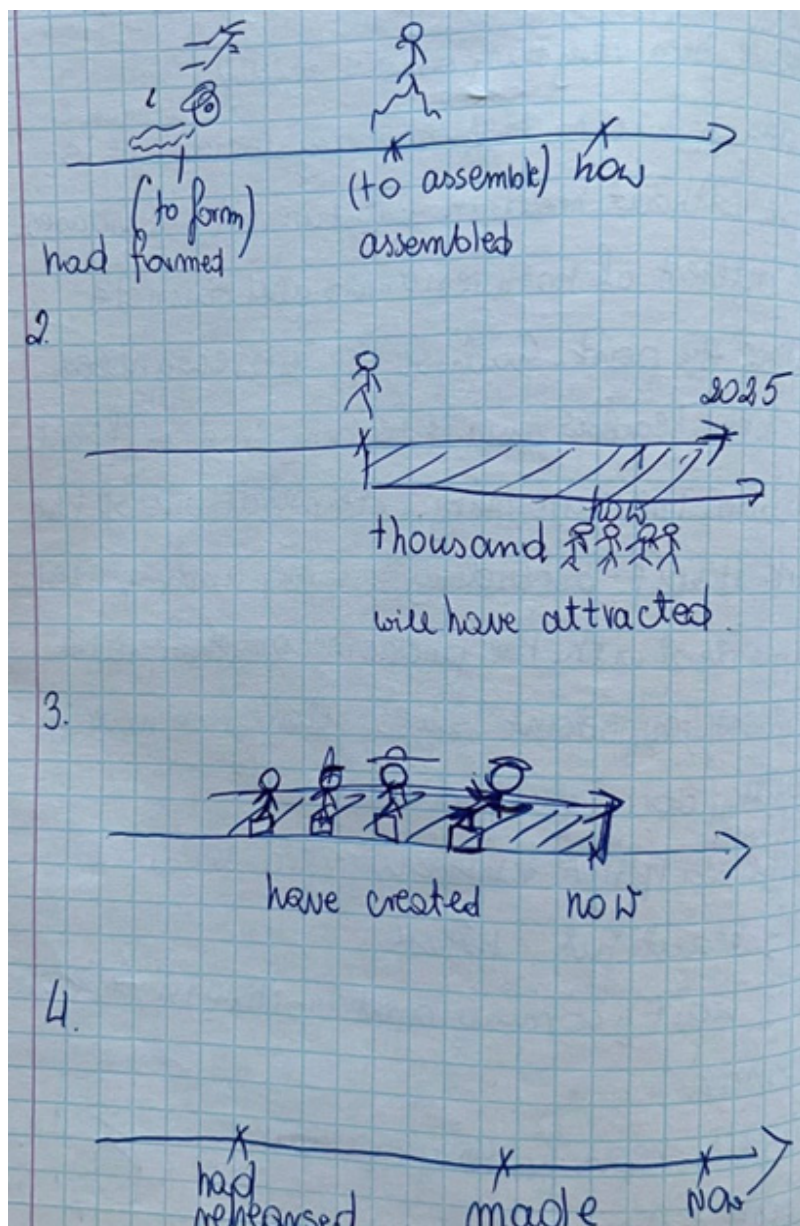 (to form)
had formed
(to assemble)
assembled
now
2.
2025
now
thousand
will have attracted.
3.
have created
now
4.
had
rehearsed
made
Now